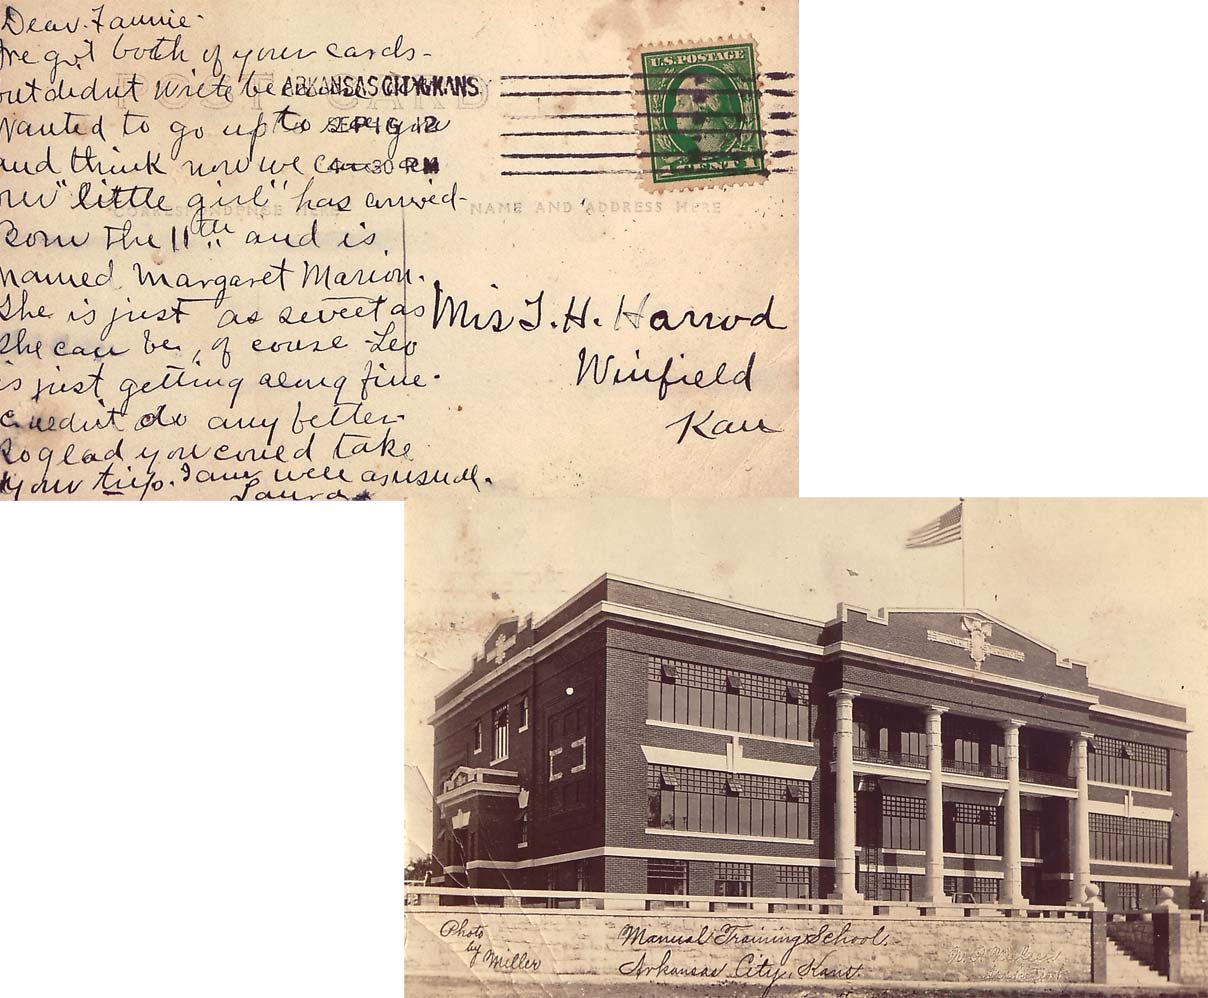 Dear Fannie-
I've got both of your cards-
but didnt write because
wanted to go up to see you
and think now we can
our "little girl" has arrived-
Born the 11th and is
named Margaret Marion.
She is just as sweet as
she can be, of couse Leo
is just getting along fine.
couldn't do any better-
So glad you could take
your trip. I am well as usual.
Laura
POST CARD
ARKANSAS CITY, KANS
SEP 16 12
4-30 PM
U.S. POSTAGE
1 CENT 1
CORRESPONDENCE HERE
NAME AND ADDRESS HERE
Mrs T. H. Harrod
Winfield
Kan
Photo
by
Miller
Manual Training School.
Arkansas City, Kans.